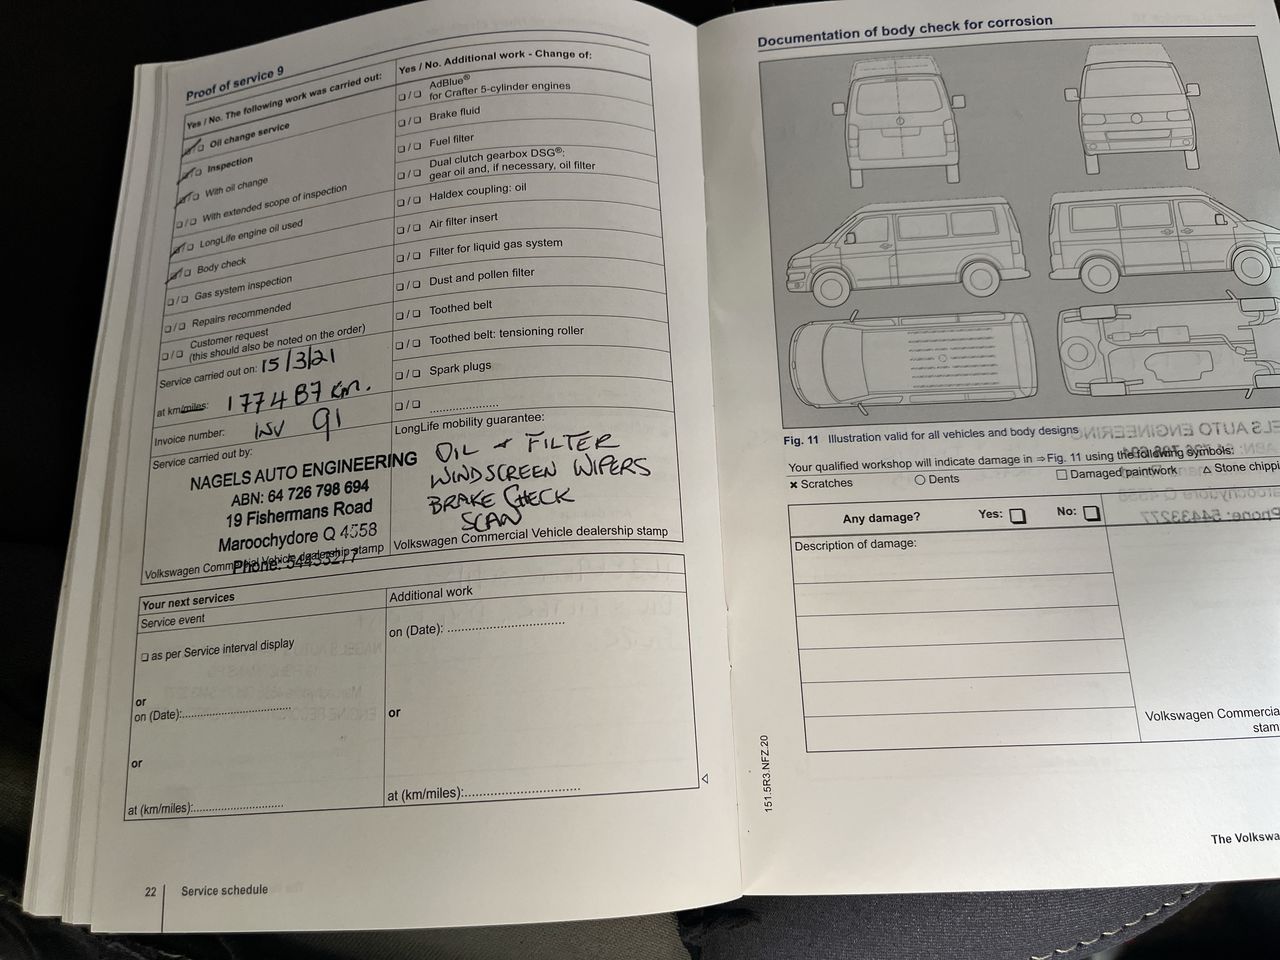 Proof of service 9
Yes / No. The following work was carried out:
❏ Oil change service
❏ Inspection
❏ With oil change
❏ / ❏ With extended scope of inspection
❏ LongLife engine oil used
❏ Body check
❏ / ❏ Gas system inspection
❏ / ❏ Repairs recommended
❏ / ❏ Customer request
(this should also be noted on the order)
Service carried out on: 15/3/21
at km/miles: 177487 Km.
Invoice number: INV 91
Service carried out by:
NAGELS AUTO ENGINEERING
ABN: 64 726 798 694
19 Fishermans Road
Maroochydore Q 4558
Phone: 54433277
Volkswagen Commercial Vehicle dealership stamp
Yes / No. Additional work - Change of:
❏ / ❏ AdBlue®
for Crafter 5-cylinder engines
❏ / ❏ Brake fluid
❏ / ❏ Fuel filter
❏ / ❏ Dual clutch gearbox DSG®:
gear oil and, if necessary, oil filter
❏ / ❏ Haldex coupling: oil
❏ / ❏ Air filter insert
❏ / ❏ Filter for liquid gas system
❏ / ❏ Dust and pollen filter
❏ / ❏ Toothed belt
❏ / ❏ Toothed belt: tensioning roller
❏ / ❏ Spark plugs
❏ / ❏ ....................
LongLife mobility guarantee:
OIL + FILTER
WINDSCREEN WIPERS
BRAKE CHECK
SCAN
Volkswagen Commercial Vehicle dealership stamp
Your next services
Service event
❏ as per Service interval display
or
on (Date):..............................
or
at (km/miles):.........................
Additional work
on (Date): ................................
or
at (km/miles):................................
22 Service schedule
Documentation of body check for corrosion
Fig. 11 Illustration valid for all vehicles and body designs
Your qualified workshop will indicate damage in ⇒Fig. 11 using the following symbols:
× Scratches
○ Dents
□ Damaged paintwork
△ Stone chippi
Any damage? Yes: ❏ No: ❏
Description of damage:
Volkswagen Commercia
stam
151.5R3.NFZ.20
The Volkswa